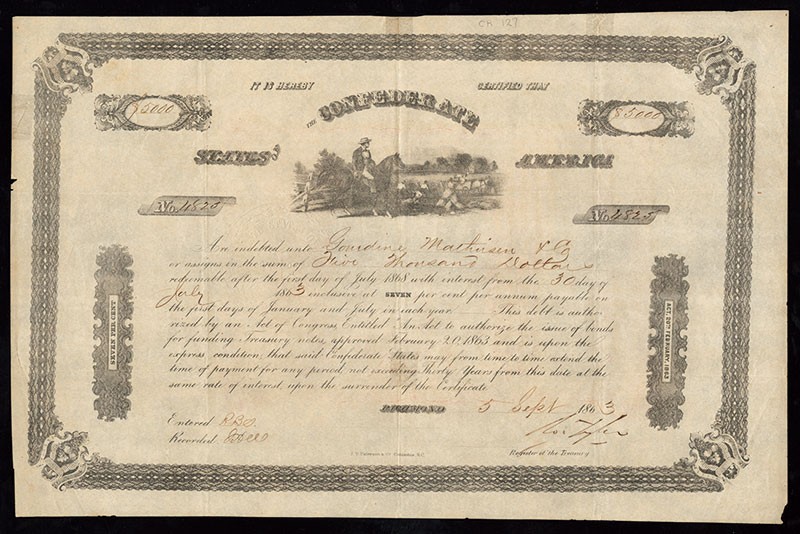 CK 127
IT IS HEREBY CERTIFIED THAT
$5000 THE CONFEDERATE $5000
STATES OF AMERICA
No. 4825 No. 4825
Are indebted unto Gourdine Mathiesen & Co
or assigns in the sum of Five Thousand Dollars
redeemable after the first day of July 1868 with interest from the 30 day of
July 1863 inclusive at SEVEN per cent per annum payable on
the first days of January and July in each year. This debt is autho-
rized by an Act of Congress Entitled An Act to authorize the issue of bonds
for funding Treasury notes, approved February 20, 1863 and is upon the
express condition, that said Confederate States may from time to time extend the
time of payment for any period not exceeding Thirty Years from this date at the
same rate of interest, upon the surrender of the Certificate
SEVEN PER CENT
ACT 20TH FEBRUARY, 1863
RICHMOND 5 Sept 1863
Entered
Recorded
Ro: Tyler
Register of the Treasury